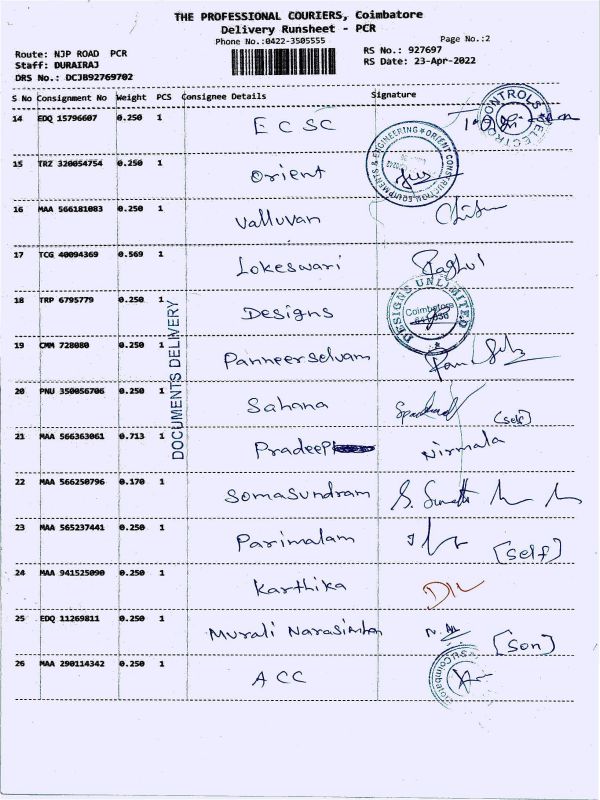 THE PROFESSIONAL COURIERS, Coimbatore
Delivery Runsheet - PCR
Phone No.:0422-3505555
Page No.:2
Route: NJP ROAD PCR
RS No.: 927697
Staff: DURAIRAJ
RS Date: 23-Apr-2022
DRS No.: DCJB92769702
S No Consignment No Weight PCS Consignee Details Signature
14 EDQ 15796607 0.250 1 ECSC
CONTROLS ELECTRO
15 TRZ 320054754 0.250 1 Orient
ORIENT CONSTRUCTION EQUIPMENTS & ENGINEERING
16 MAA 566181083 0.250 1 Valluvan
17 TCG 40094369 0.569 1 Lokeswari Raghul
18 TRP 6795779 0.250 1 Designs
DESIGNS UNLIMITED
Coimbatore
19 CMM 728080 0.250 1 Panneerselvam
DOCUMENTS DELIVERY
20 PNU 350056706 0.250 1 Sahana [self]
21 MAA 566363061 0.713 1 Pradeep Nirmala
22 MAA 566250796 0.170 1 Somasundram
23 MAA 565237441 0.250 1 Parimalam [self]
24 MAA 941525090 0.250 1 Karthika
25 EDQ 11269811 0.250 1 Murali Narasimhan [son]
26 MAA 290114342 0.250 1 ACC